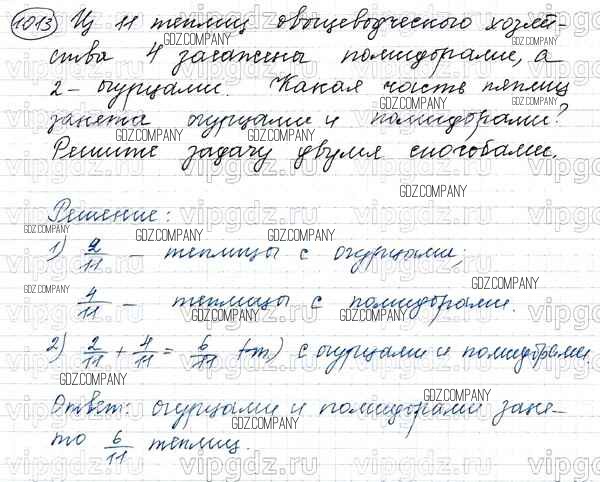 1013 Из 11 теплиц овощеводческого хозяй-
ства 4 засажены помидорами, а
2 - огурцами. Какая часть теплиц
занята огурцами и помидорами?
Решите задачу двумя способами.
Решение:
1) 2/11 - теплицы с огурцами;
4/11 - теплицы с помидорами.
2) 2/11 + 4/11 = 6/11 (т) с огурцами и помидорами
Ответ: огурцами и помидорами заня-
то 6/11 теплиц.
GDZ.COMPANY
vipgdz.ru